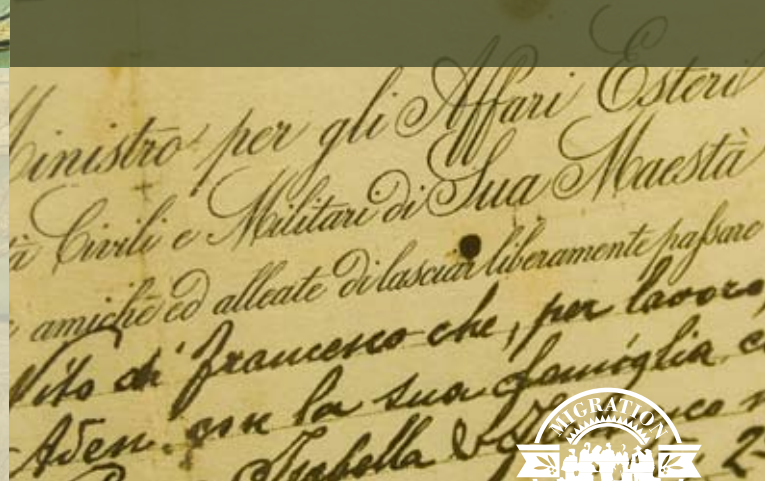 Ministro per gli Affari Esteri
Civili e Militari di Sua Maestà
amiche ed alleate di lasciar liberamente passare
Vito di Francesco che, per lavoro,
Aden con la sua famiglia
Isabella
MIGRATION